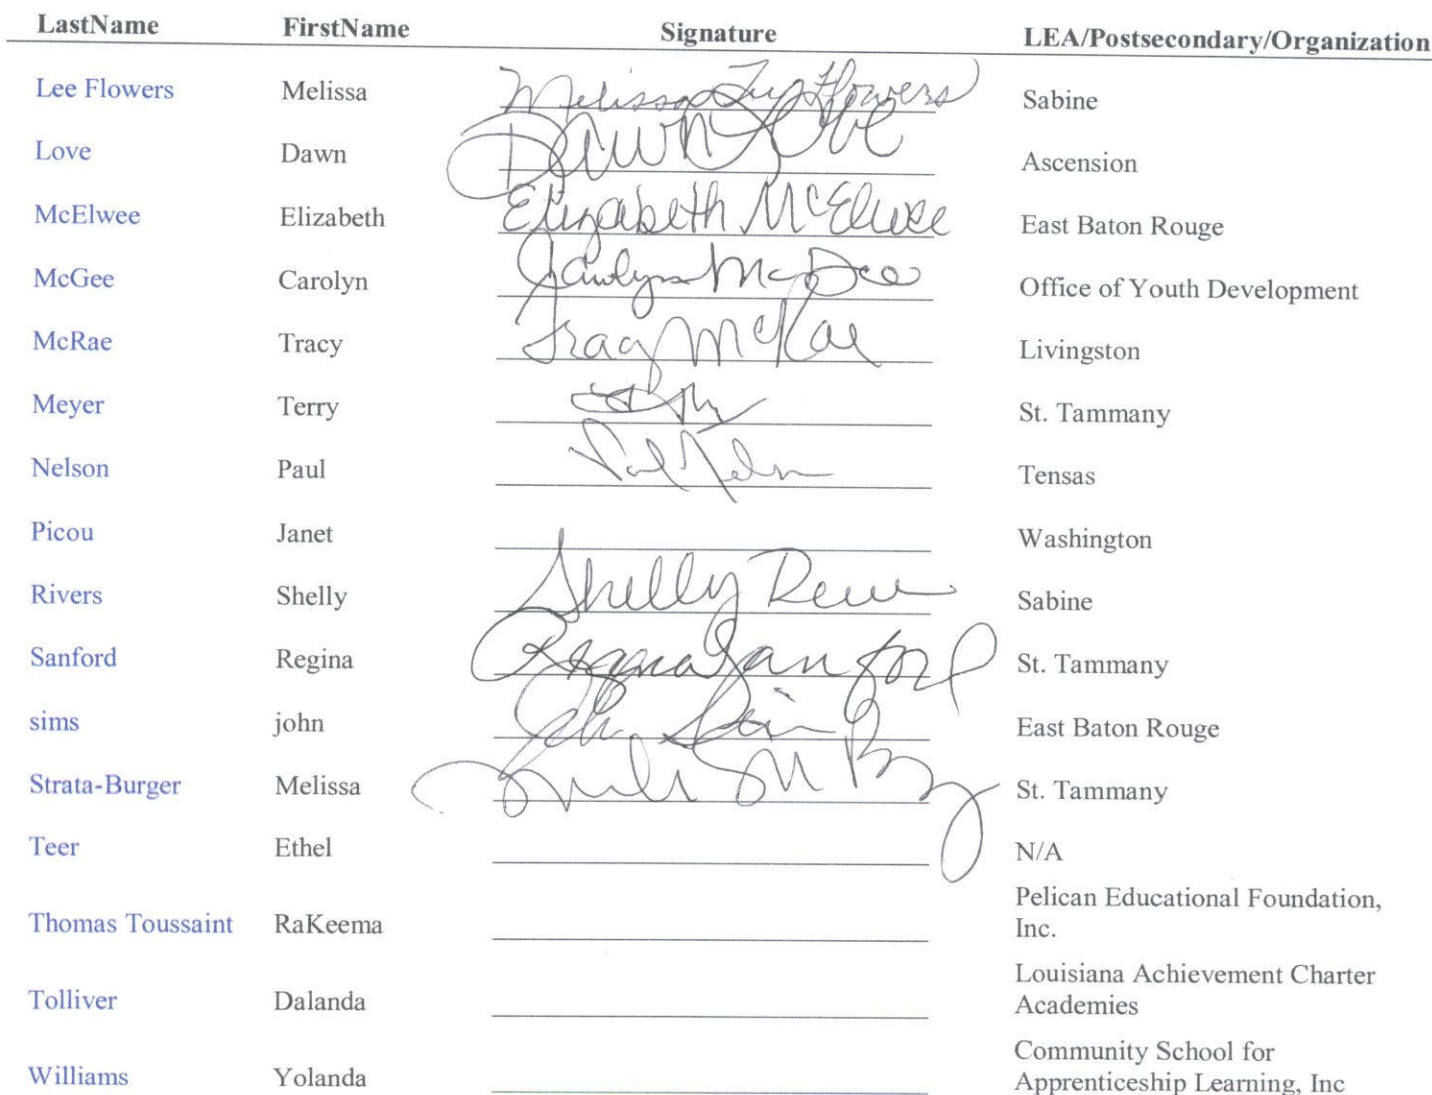 LastName FirstName Signature LEA/Postsecondary/Organization
Lee Flowers Melissa Melissa Lee Flowers Sabine
Love Dawn Dawn Love Ascension
McElwee Elizabeth Elizabeth McElwee East Baton Rouge
McGee Carolyn Carolyn McGee Office of Youth Development
McRae Tracy Tracy McRae Livingston
Meyer Terry St. Tammany
Nelson Paul Paul Nelson Tensas
Picou Janet Washington
Rivers Shelly Shelly Sabine
Sanford Regina Regina Sanford St. Tammany
sims john John Sims East Baton Rouge
Strata-Burger Melissa St. Tammany
Teer Ethel N/A
Thomas Toussaint RaKeema Pelican Educational Foundation,
Inc.
Tolliver Dalanda Louisiana Achievement Charter
Academies
Williams Yolanda Community School for
Apprenticeship Learning, Inc